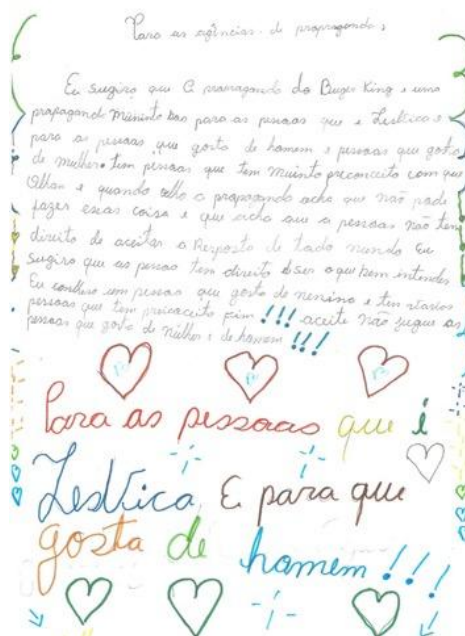 Para as agências de propragandas
Eu sugiro que a proragando do Buger King e uma
propagando muninto boa para as pessoas que e Lesbica e
para as pessoas que gosto de homem e pessoas que gosto
de mulher. tem pessoas que tem muinto preconceito com que
Olhan e quando olho o propagando acha que não pode
fazer esas coisa e que acha que a pessoas não tem
direito de aceitar a Resposta de todo mundo Eu
sugiro que as pessoa tem direito de ser o que bem intendes
Eu conheso um pessoa que gosto de nenino e tem varios
pessoas que tem preicoceito !!! aceite não jugue as
pessoas que gosto de mulher e de homem !!!
Para as pessoas que é
Lesbica E para que
gosta de homem!!!